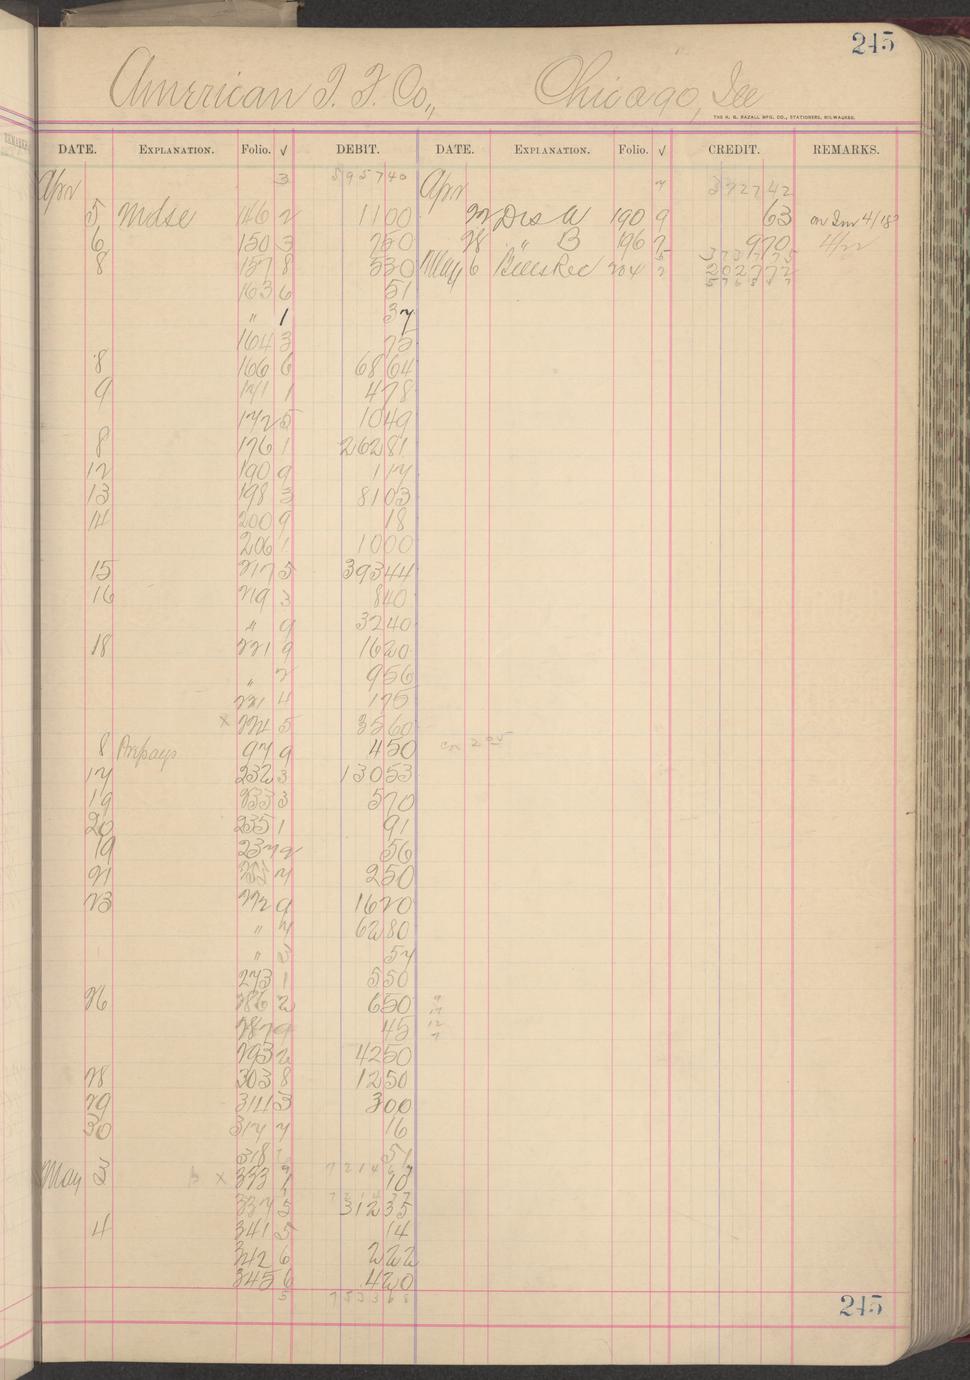 245
American T. F. Co., Chicago, Ill
THE H. G. RAZALL MFG. CO., STATIONERS, MILWAUKEE.
DATE. EXPLANATION. Folio. √ DEBIT. DATE. EXPLANATION. Folio. √ CREDIT. REMARKS.
Apr 3 595740 Apr 372742
5 Mdse 146 2 1100 22 Dis A 190 9 63 on Inv 4/18
6 150 3 750 28 " B 196 2 970 4/22
8 157 8 530 May 6 Bills Rec 204 2 202772
163 6 51
" 1 37
164 3 75
8 166 6 6864
9 171 1 478
172 5 1049
8 176 1 26281
12 190 9 117
13 198 3 8103
14 200 9 18
206 1 1000
15 217 5 39344
16 219 3 840
" 9 3240
18 221 9 1620
" 2 956
221 4 175
x 224 5 3560
8 Prepays 97 9 450
17 232 3 13053
19 233 3 570
20 235 1 91
19 237 2 56
21 7 250
23 272 9 1620
" 4 6280
" 3 57
273 1 550
26 286 2 650
287 9 45
293 2 4250
28 303 8 1250
29 311 3 300
30 317 7 16
318 51
May 3 x 333 1 10
337 5 31235
4 341 5 14
342 6 222
345 6 420
5 753368
245